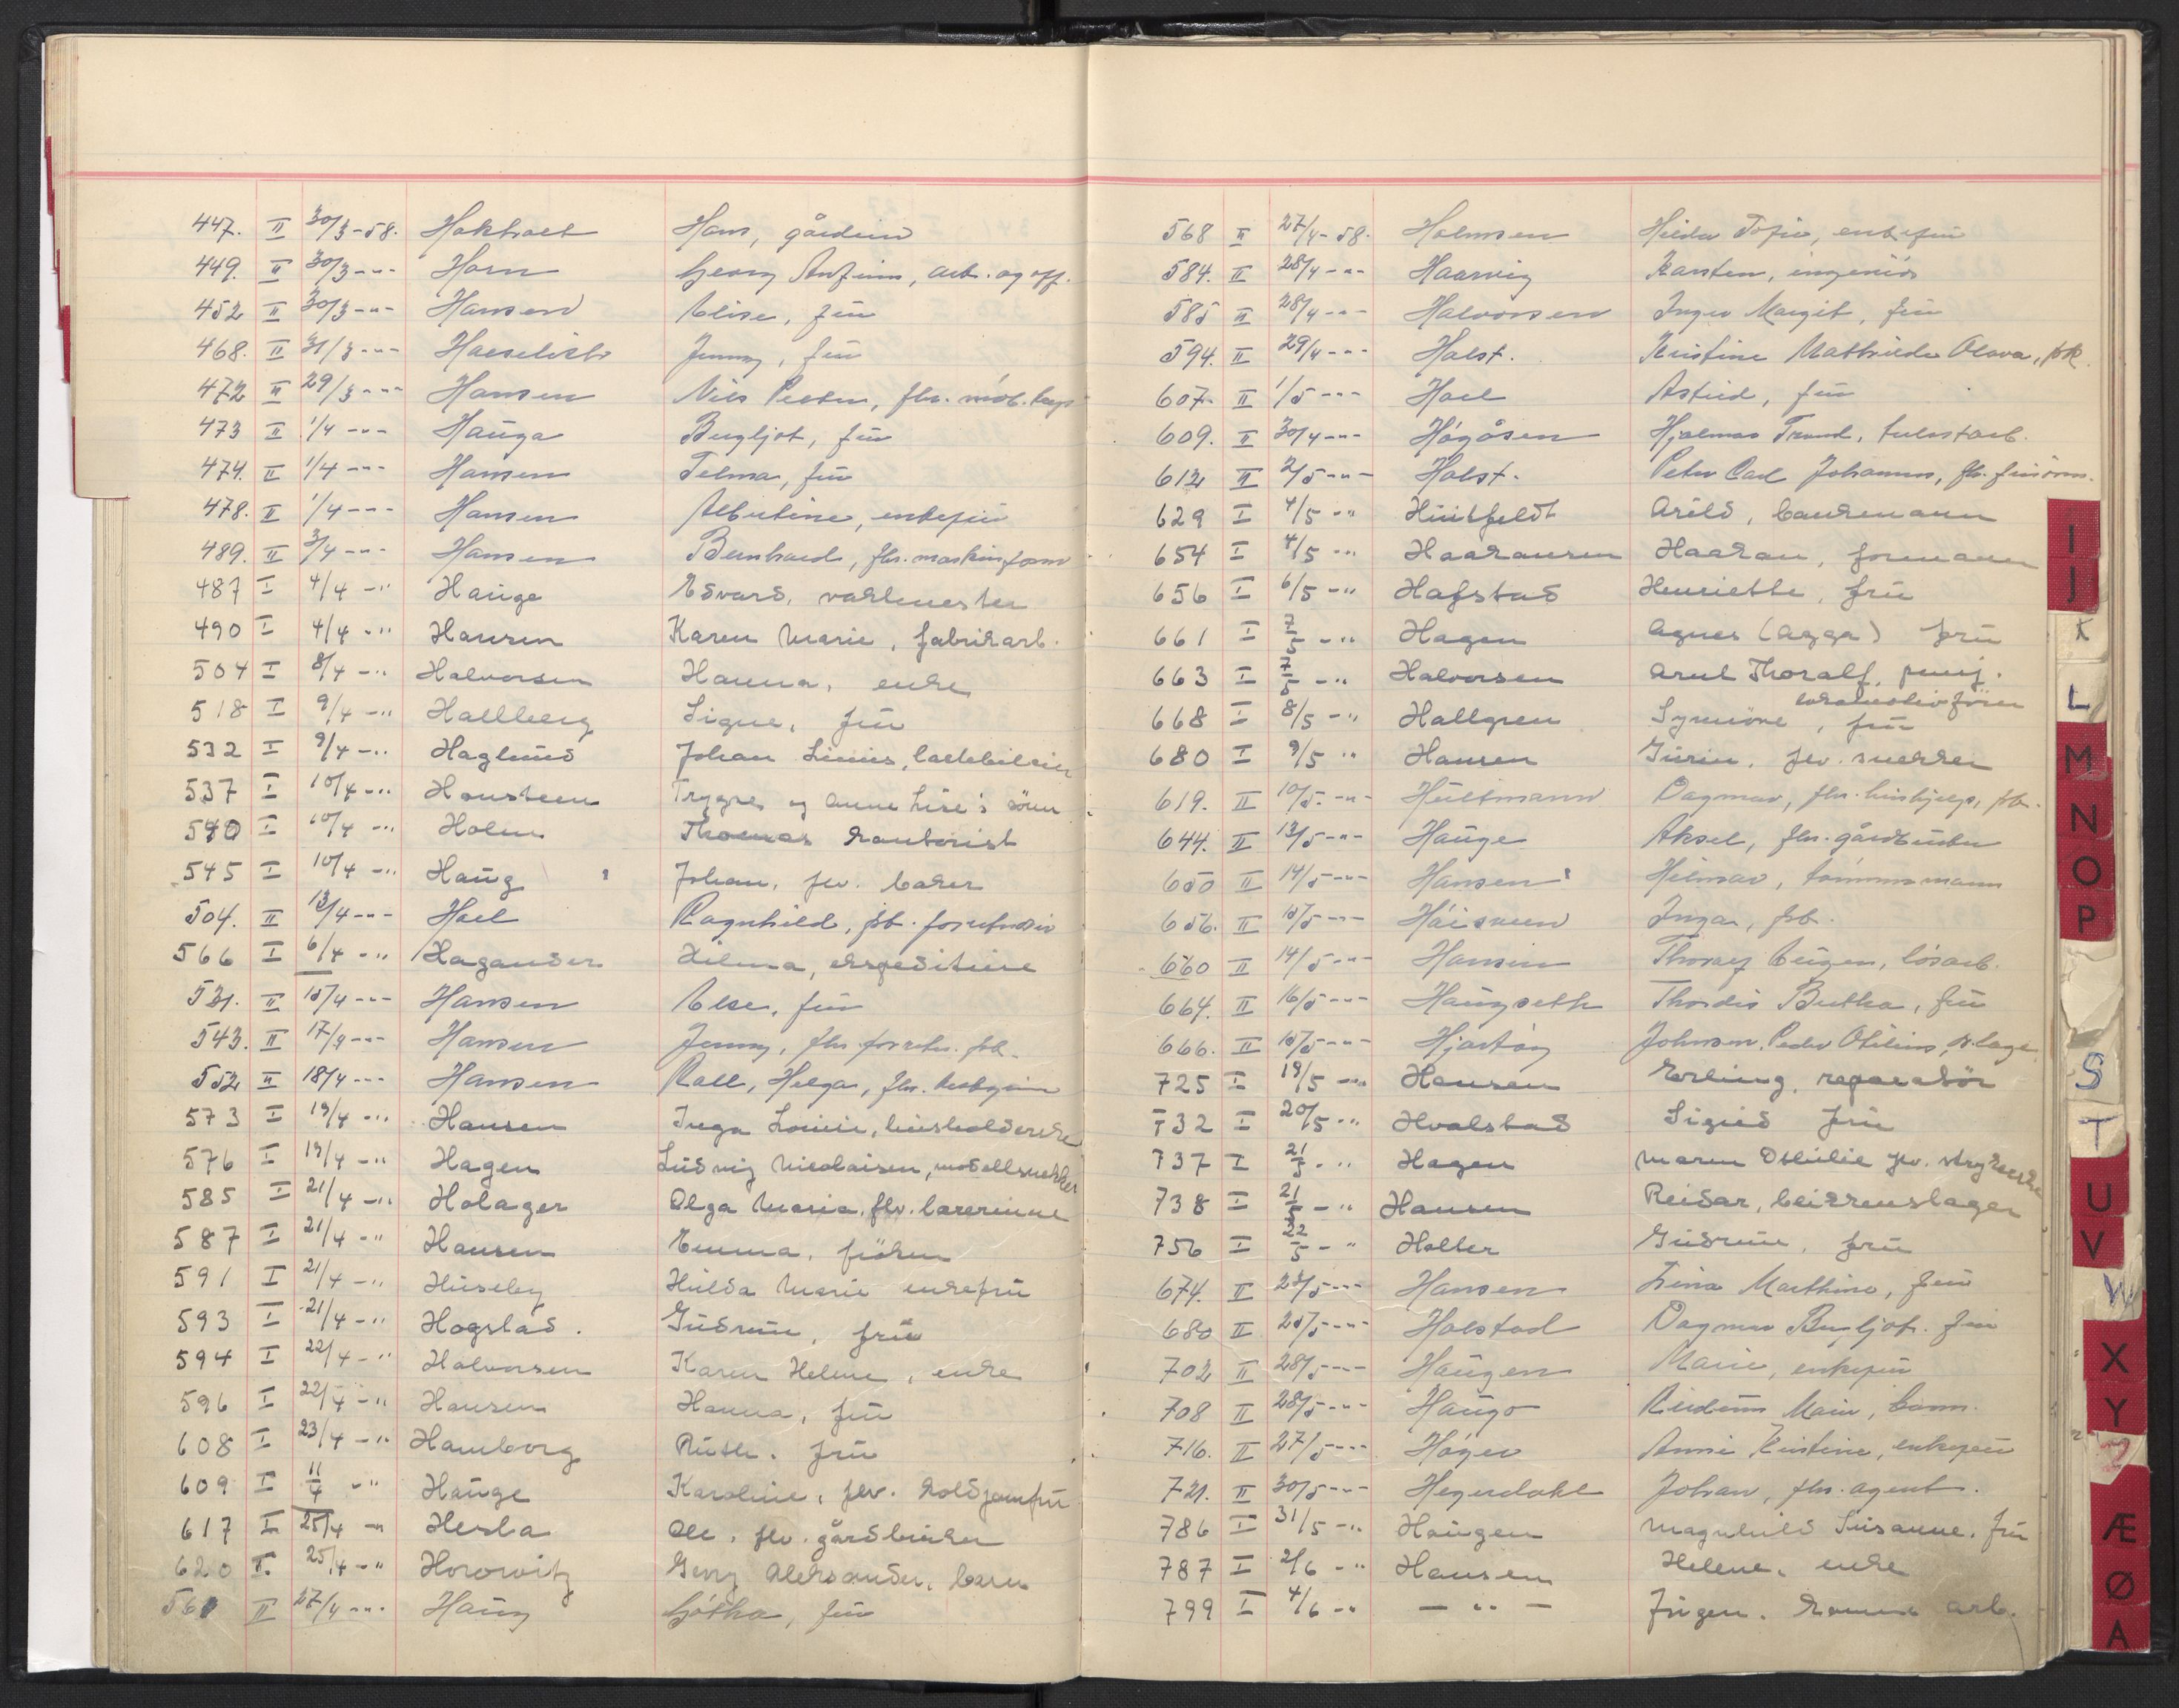 447. II 30/3-58. Hans,
449. II 30/3 -"- Horn Georg, arb. og
452 II 30/3 -"- Hansen Elise, frü
468. II 31/3 -"- Jenny, frü
472 II 29/3 -"- Hansen Nils Peder, fhv.
473 II 1/4 -"- Hauga Bergljot, frü
474. II 1/4 -"- Hansen Telma, frü
478. II 1/4 -"- Hansen Albertine, enkefrü
489. II 3/4 -"- Hansen Bernhard, fhv. maskinform
487 I 4/4 -" Hauge Edvard, vaktmester
490 I 4/4 -" Hansen Karen Marie, fabrikarb.
504 I 8/4 -" Halvorsen Hanna, enke
518 I 9/4 -" Hallberg Signe, frü
532 I 9/4 -" Haglund Johan Linus, lastebileier
537 I 10/4 -" Hansteen Trygve og Anne Lise's sönn
540 I 10/4 -" Holm Thomas kontorist
545 I 10/4 -" Haug Johan, fhv. baker
504. II 13/4 -"- Hoel Ragnhild, frk.
566 I 6/4 -" Hagander Hilma, ekspeditrice
531. II 15/4 -"- Hansen Else, frü
543. II 17/4 -"- Hansen Jenny, fhv. frk.
552 II 18/4 -"- Hansen Rall, Helga, fhv.
573 I 19/4 -" Hansen Inga Lovise, hüsholderske
576 I 19/4 -" Hagen Lüdvig Nicolaisen, modellsnekker
585 I 21/4 -" Holager Olga Maria, fhv. lærerinne
587 I 21/4 -" Hansen Emma, fröken
591 I 21/4 -" Hüseby Hilda Marie enkefrü
593 I 21/4 -" Hogstad. Güdrün, frü
594 I 22/4 -" Halvorsen Karen Helene, enke
596 I 22/4 -" Hansen Hanna, frü
608 I 23/4 -" Hamborg Rüth. frü
609 I 11/4 -" Hauge Karoline, fhv. koldjomfrü
617 I 25/4 -" Hesla Ole, fhv. gårdbrüker
620 I 25/4 -" Horowitz Georg Aleksander, barn
561 II 27/4 -"- Haug Götha, frü
568 II 27/4-58. Holmsen Hilda Sofie, enkefrü
584. II 28/4 -"- Haarvig Karsten, ingeniör
585 II 28/4 -"- Halvorsen Inger Margit, frü
594. II 29/4 -"- Holst. Kristine Mathilde Olava, frk.
607. II 1/5 -"- Hoel Astrid, frü
609. II 30/4 -"- Högåsen Hjalmar Trand,
612 II 2/5 -"- Holst. Peter Carl Johannes, fhv.
629 I 4/5 -" Hüitfeldt Arild, bankmann
654 I 4/5 -" Haakansen Haakan, formann
656 I 6/5 -" Hafstad Henriette, frü
661 I 7/5 -" Hagen Agnes (Agga) frü
663 I 7/5 -" Halvorsen Arnt Thoralf, pensj.
lokomotivförer
668 I 8/5 -" Hallgren Synnöve, frü
680 I 9/5 " Hansen fhv. snekker
619. II 10/5 -"- Hültmann Dagmar, fhv. hüshjelp, frk.
644. II 13/5 -"- Hauge Aksel, fhv. gårdbrüker
650 II 14/5 -"- Hansen Hilmar, tömmermann
656. II 15/5 -"- Inga, frk.
660 II 14/5 -"- Hansen Thoralf Eugen, lösarb.
664. II 16/5 -"- Haugseth Thordis Bertha, frü
666. II 15/5 -"- Hjartöy Johnsen, Peder Otilius,
725 I 19/5 -" Hansen Erling, reparatör
732 I 20/5 -" Hvalstad Sigrid frü
737 I 21/5 -" Hagen Maren Othilie fhv. strykerske
738 I 21/5 -" Hansen Reidar, blikkenslager
756 I 22/5 -" Holter Güdrün, frü
674. II 25/5 -"- Hansen Lina Marthine, frü
680 II 25/5 -"- Halstad Dagmar Bergljot. frü
702 II 28/5 -"- Haugen Marie, enkefrü
708 II 28/5 -"- Reidünn Marie, barn.
716. II 27/5 -"- Höyer Anne Kristine, enkefrü
721. II 30/5 -"- Hegerdahl Johan, fhv. agent.
786 I 31/5 -" Haugen Magnhild Süsanne, frü
787 I 2/6 -" Hansen Helene, enke
799 I 4/6 -" — " — Jörgen. komm. arb.
I
J
K
L
M
N
O
P
S
T
U
V
W
X
Y
Z
Æ
Ø
A